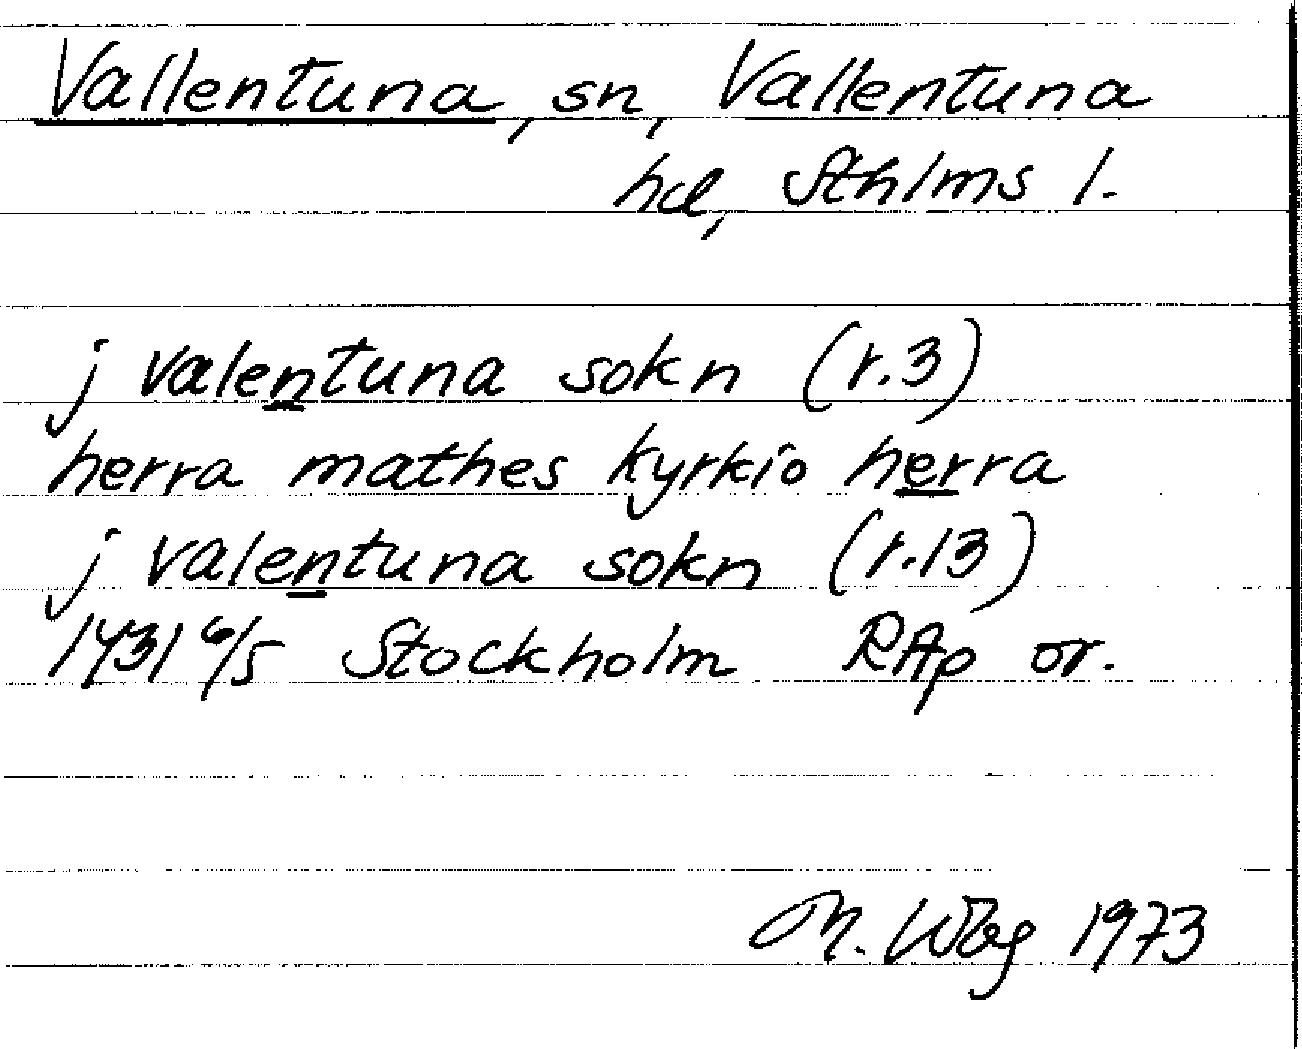 Vallentuna, sn, Vallentuna
hd, Sthlms l.
j valentuna sokn (r.3)
herra mathes kyrkio herra
j valentuna sokn (r.13)
1431 6/5 Stockholm RAp or.
M. Wbg 1973